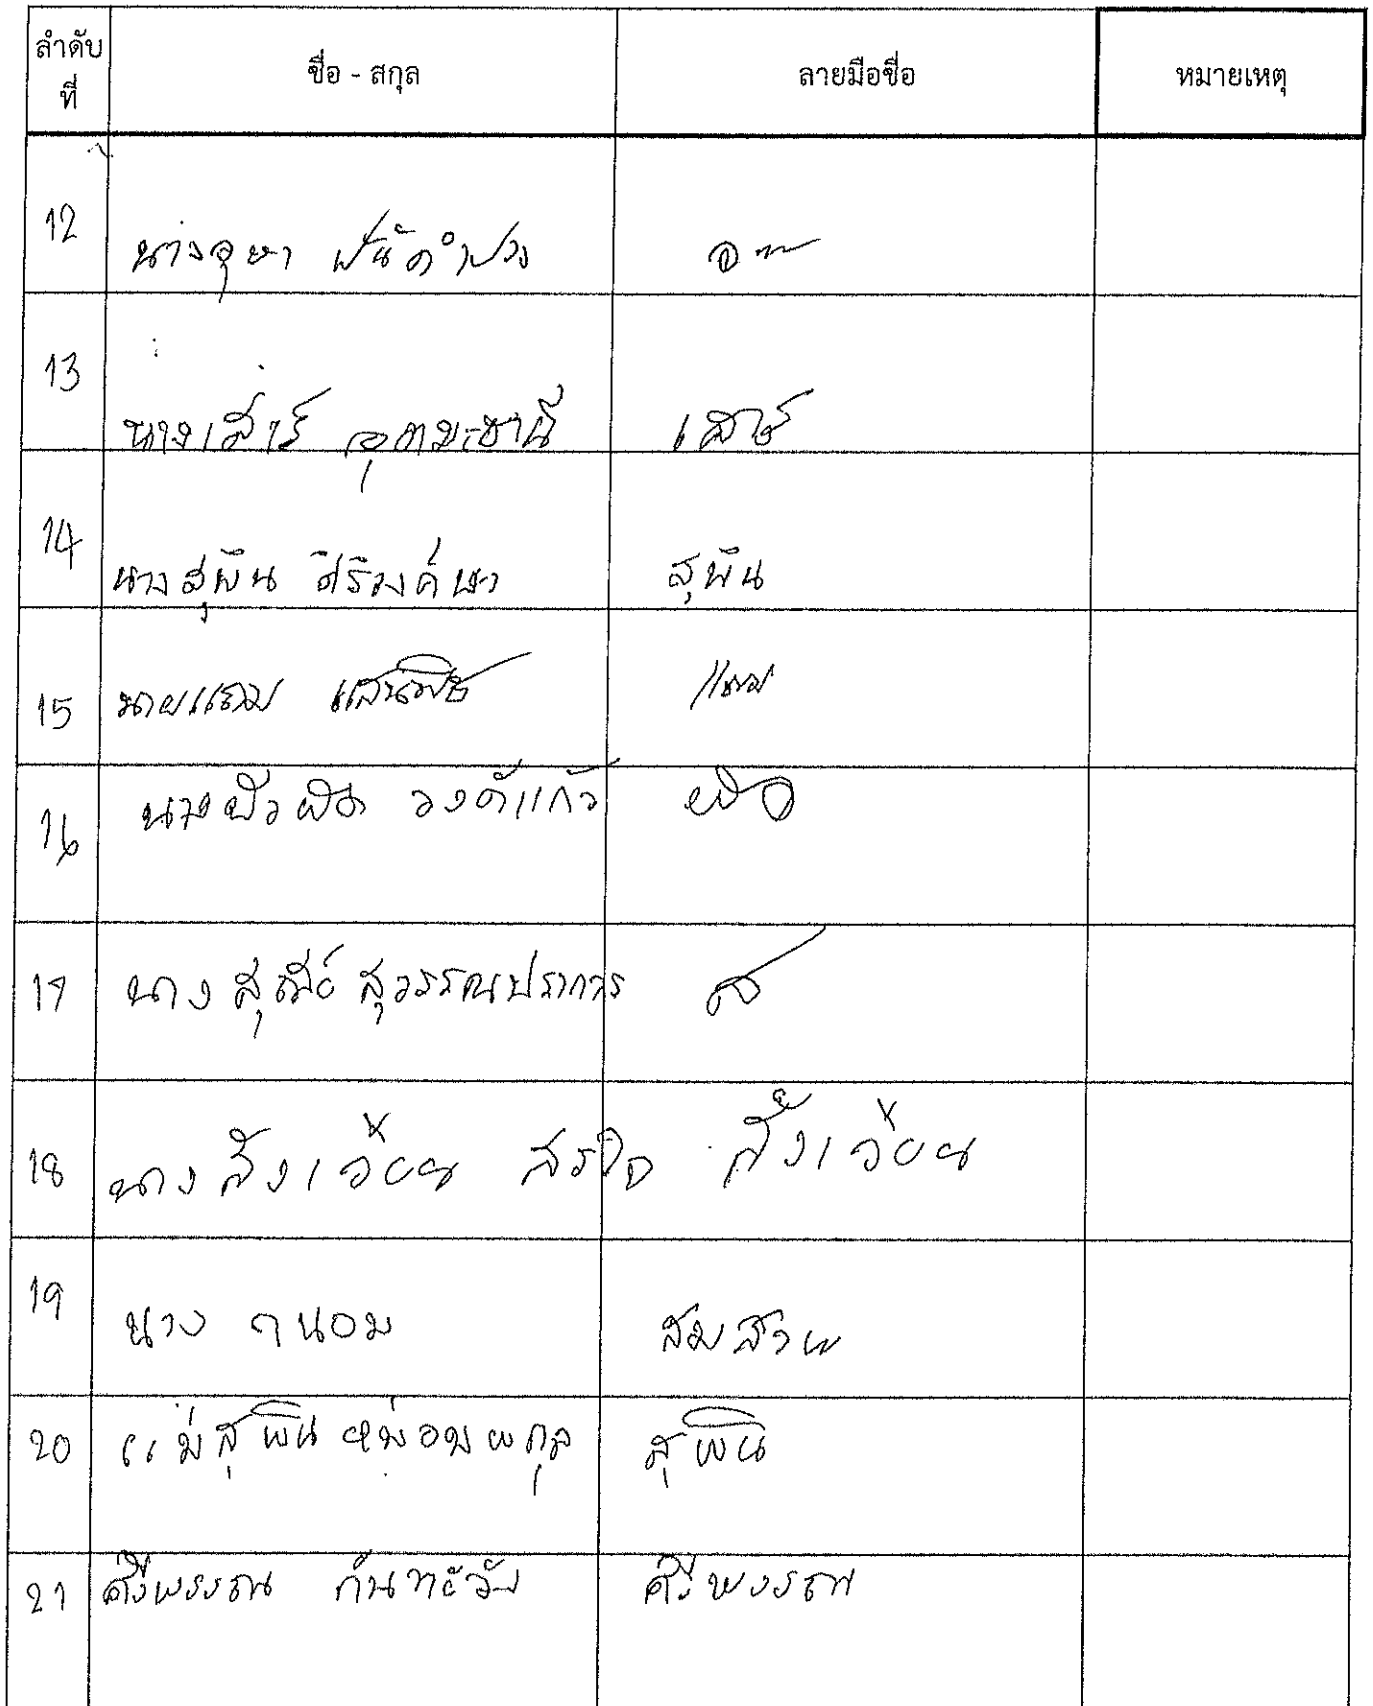 ลำดับที่ ชื่อ - สกุล ลายมือชื่อ หมายเหตุ
12 นางอุษา ปันคำปวง
13 นางเสาร์ อุตมะธานี เสาร์
14 นางสุพิน สุพิน
15 นายแถม แสนพิช แถม
16 นางบัวผัด วงค์แก้ว
17 นาง สุวรรณปราการ
18 นาง สังเวียน สรใจ สังเวียน
19 นาง ถนอม สมสวย
20 แม่สุพิน สุพิน
21 ศรีพรรณ กันทะวัง ศรีพรรณ